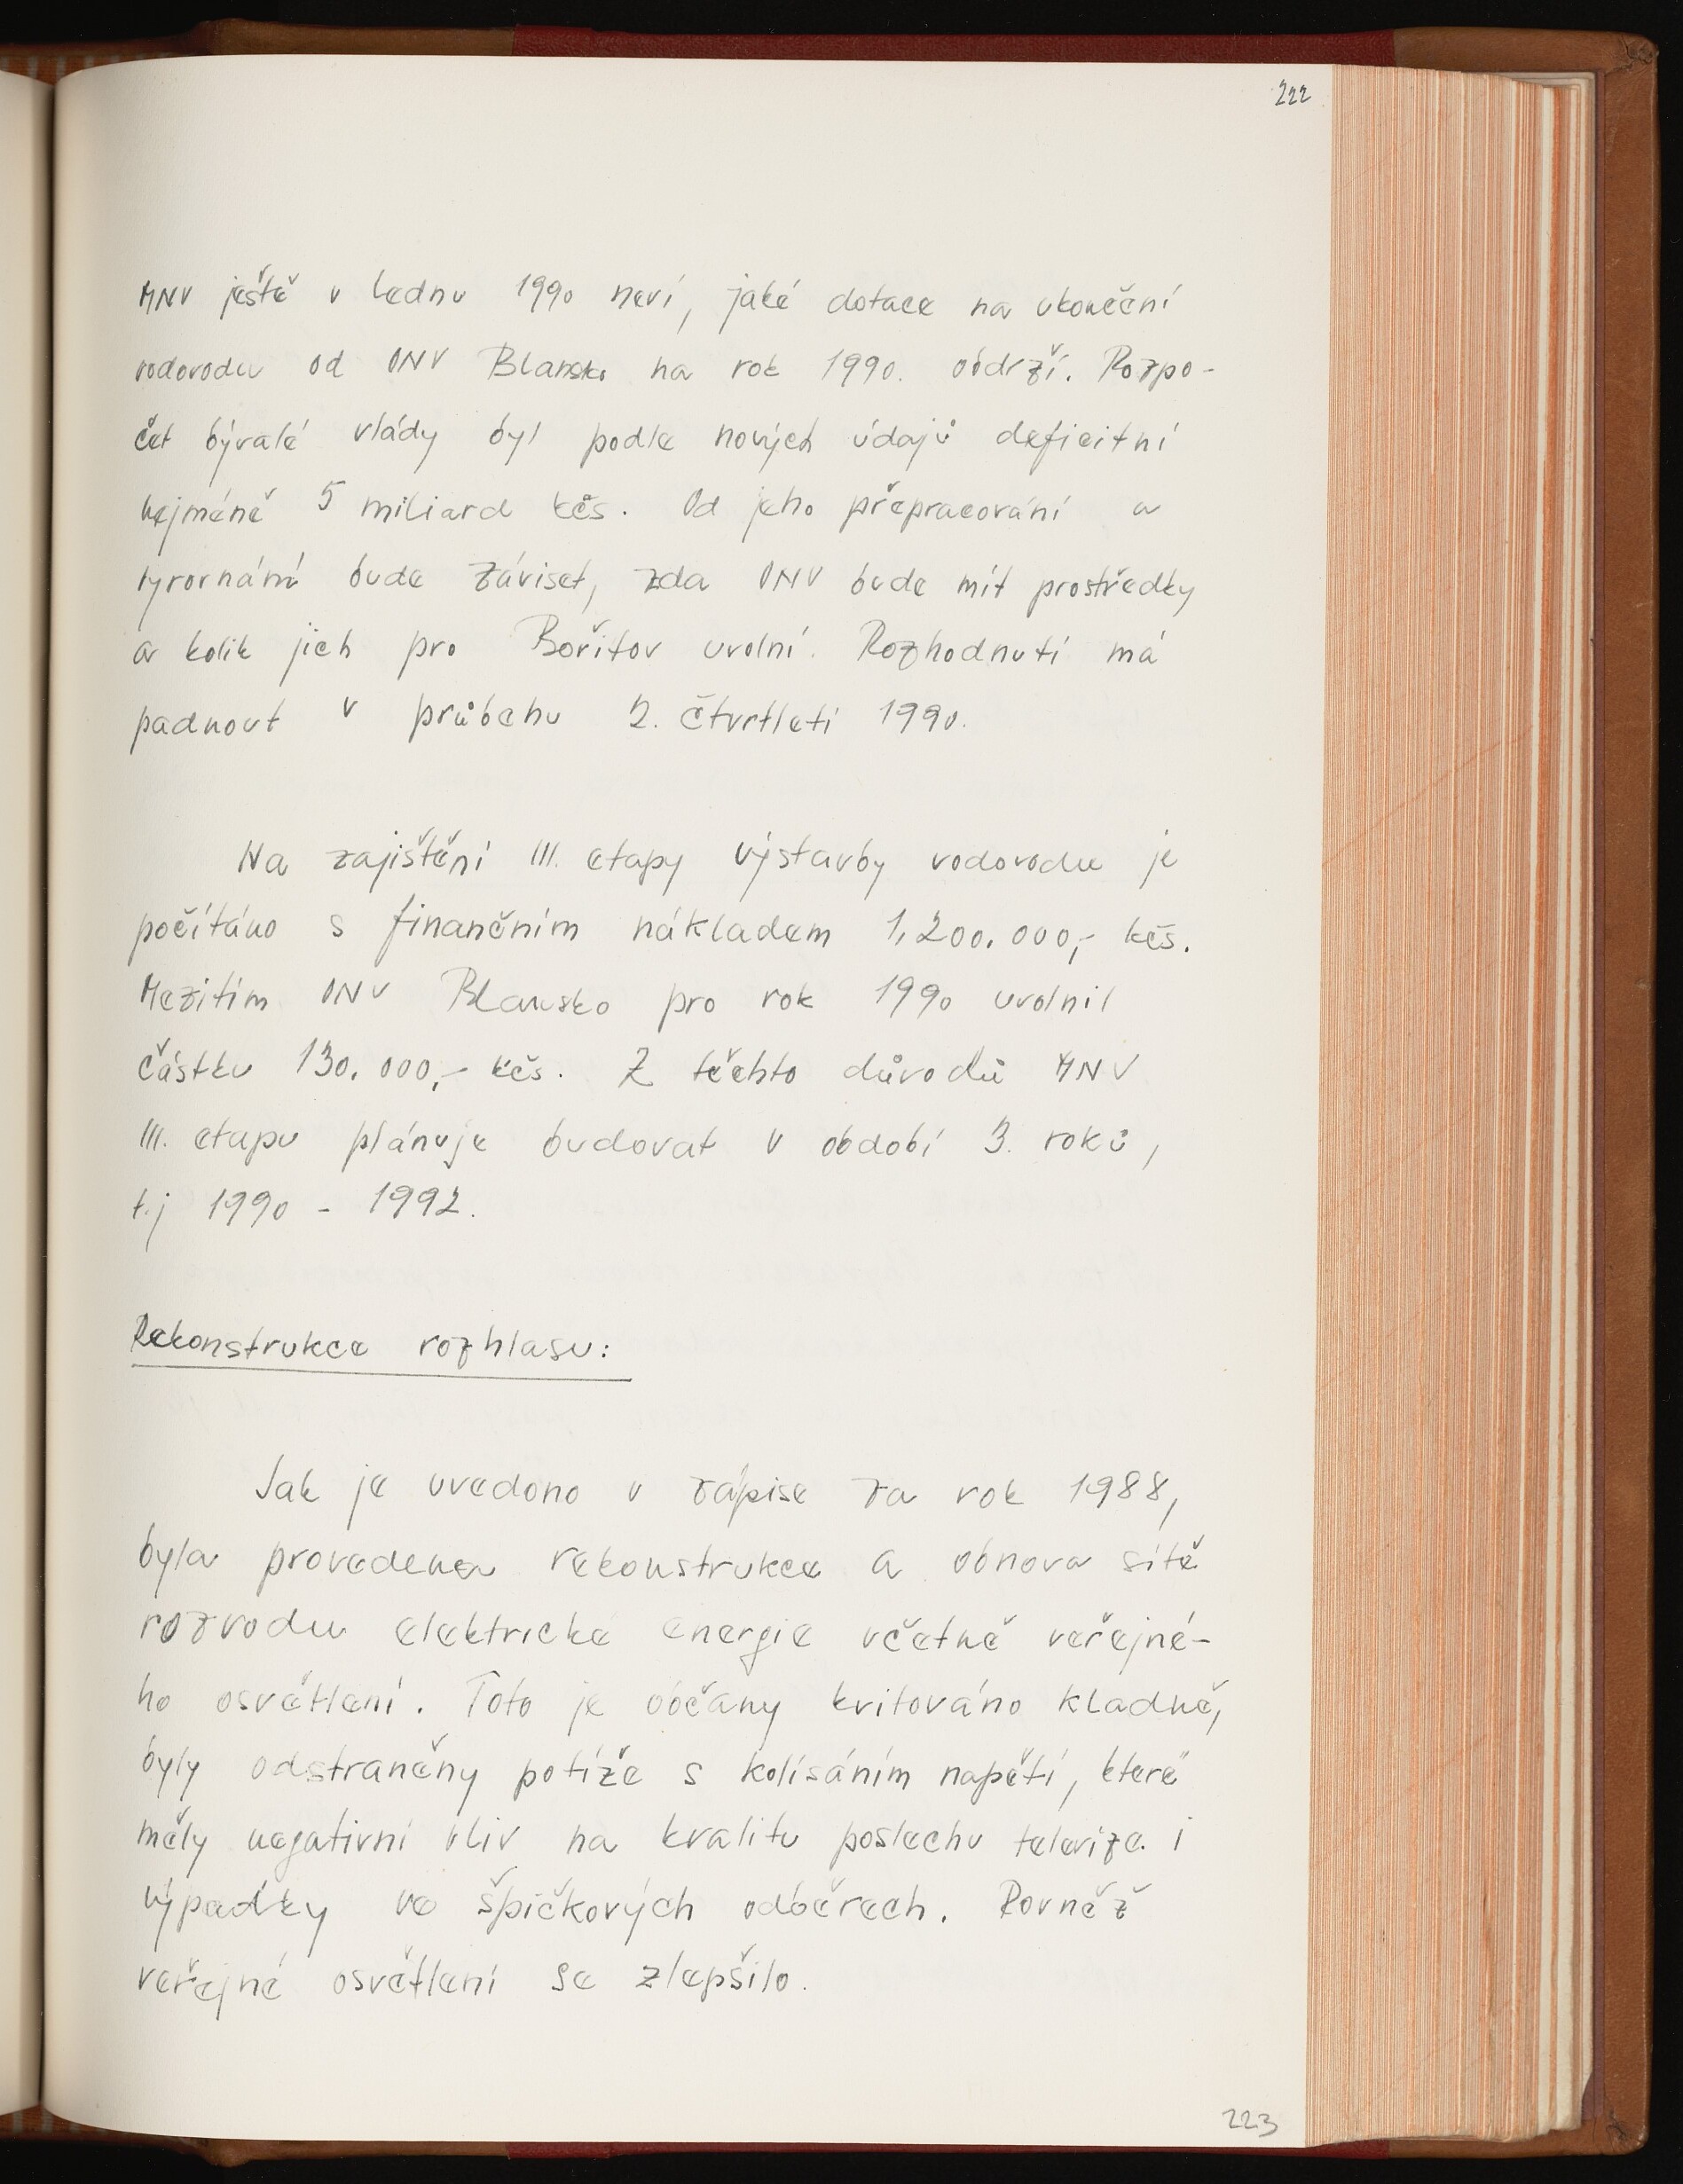 222
MNV ještě v lednu 1990 neví, jaké dotace na ukončení
vodovodu od ONV Blansko na rok 1990. obdrží. Rozpo-
čet bývalé vlády byl podle nových údajů deficitní
nejméně 5 miliard kčs. Od jeho přepracování a
vyrovnání bude záviset, zda ONV bude mít prostředky
a kolik jich pro Bořitov uvolní. Rozhodnutí má
padnout v průbehu 2. čtvrtletí 1990.
Na zajištění III. etapy výstavby vodovodu je
počítáno s finančním nákladem 1,200.000,- kčs.
Mezitím ONV Blansko pro rok 1990 uvolnil
částku 130.000,- kčs. Z těchto důvodů MNV
III. etapu plánuje budovat v období 3. roků,
t.j 1990 - 1992.
Rekonstrukce rozhlasu:
Jak je uvedono v zápise za rok 1988,
byla provedena rekonstrukce a obnova sítě
rozvodu elektricke energie včetně veřejné-
ho osvětlení. Toto je občany kvitováno kladně,
byly odstraněny potíže s kolísáním napětí, které
měly negativní vliv na kvalitu poslechu televize. i
výpadky ve špičkových odběrech. Rovněž
veřejné osvětlení se zlepšilo.
223